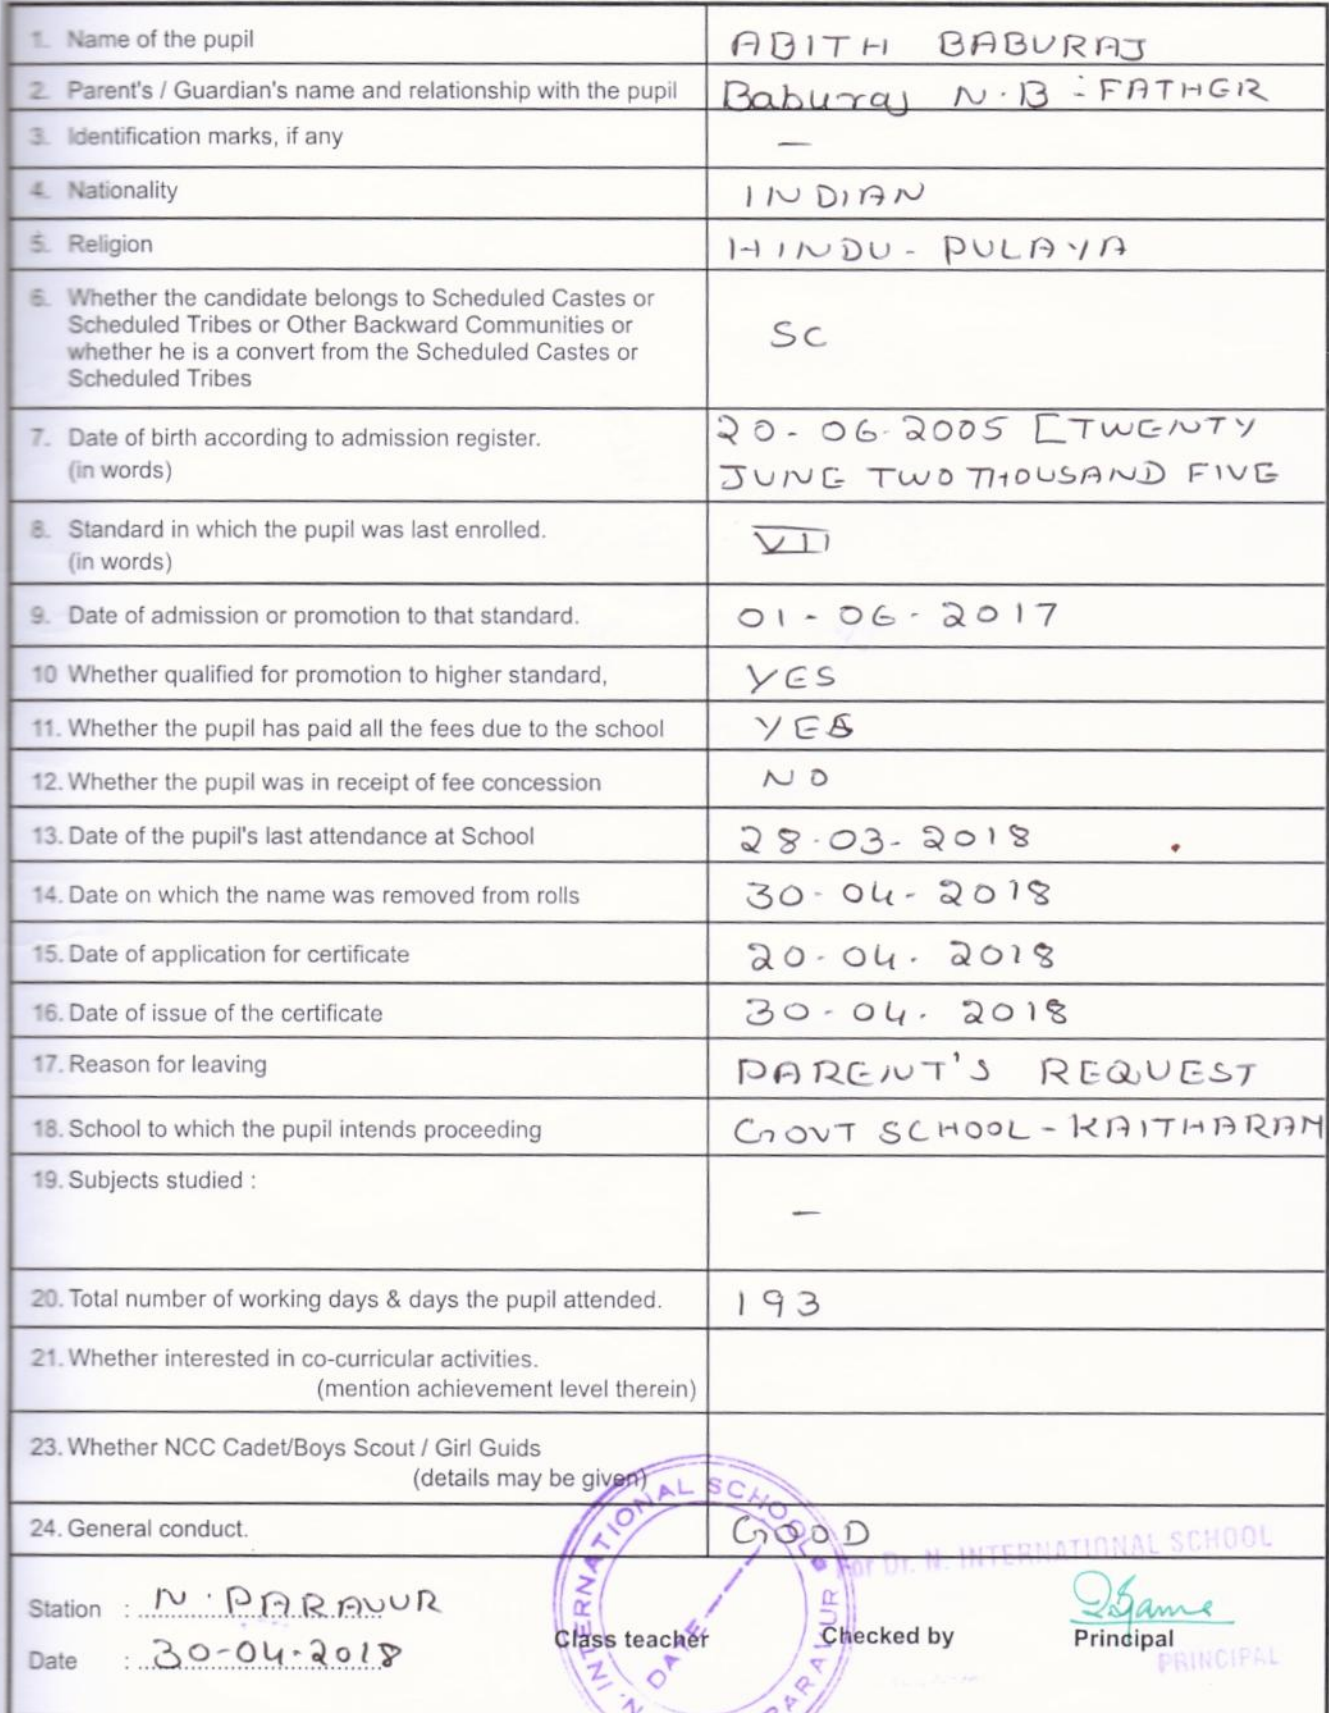 1. Name of the pupil ABITH BABURAJ
2. Parent's / Guardian's name and relationship with the pupil Baburaj N.B - FATHER
3. Identification marks, if any —
4. Nationality INDIAN
5. Religion HINDU - PULAYA
6. Whether the candidate belongs to Scheduled Castes or
Scheduled Tribes or Other Backward Communities or
whether he is a convert from the Scheduled Castes or
Scheduled Tribes
SC
7. Date of birth according to admission register.
(in words)
20-06-2005 [TWENTY
JUNE TWO THOUSAND FIVE
8. Standard in which the pupil was last enrolled.
(in words)
VII
9. Date of admission or promotion to that standard. 01-06-2017
10 Whether qualified for promotion to higher standard, YES
11. Whether the pupil has paid all the fees due to the school YES
12. Whether the pupil was in receipt of fee concession NO
13. Date of the pupil's last attendance at School 28-03-2018
14. Date on which the name was removed from rolls 30-04-2018
15. Date of application for certificate 20-04-2018
16. Date of issue of the certificate 30-04-2018
17. Reason for leaving PARENT'S REQUEST
18. School to which the pupil intends proceeding GOVT SCHOOL - KAITHARAM
19. Subjects studied : —
20. Total number of working days & days the pupil attended. 193
21. Whether interested in co-curricular activities.
(mention achievement level therein)
23. Whether NCC Cadet/Boys Scout / Girl Guids
(details may be given)
24. General conduct. GOOD
For Dr. N. INTERNATIONAL SCHOOL
Station : N. PARAVUR
Class teacher Checked by Principal
Date : 30-04-2018
PRINCIPAL
N. INTERNATIONAL SCHOOL
PARAVUR
DATE